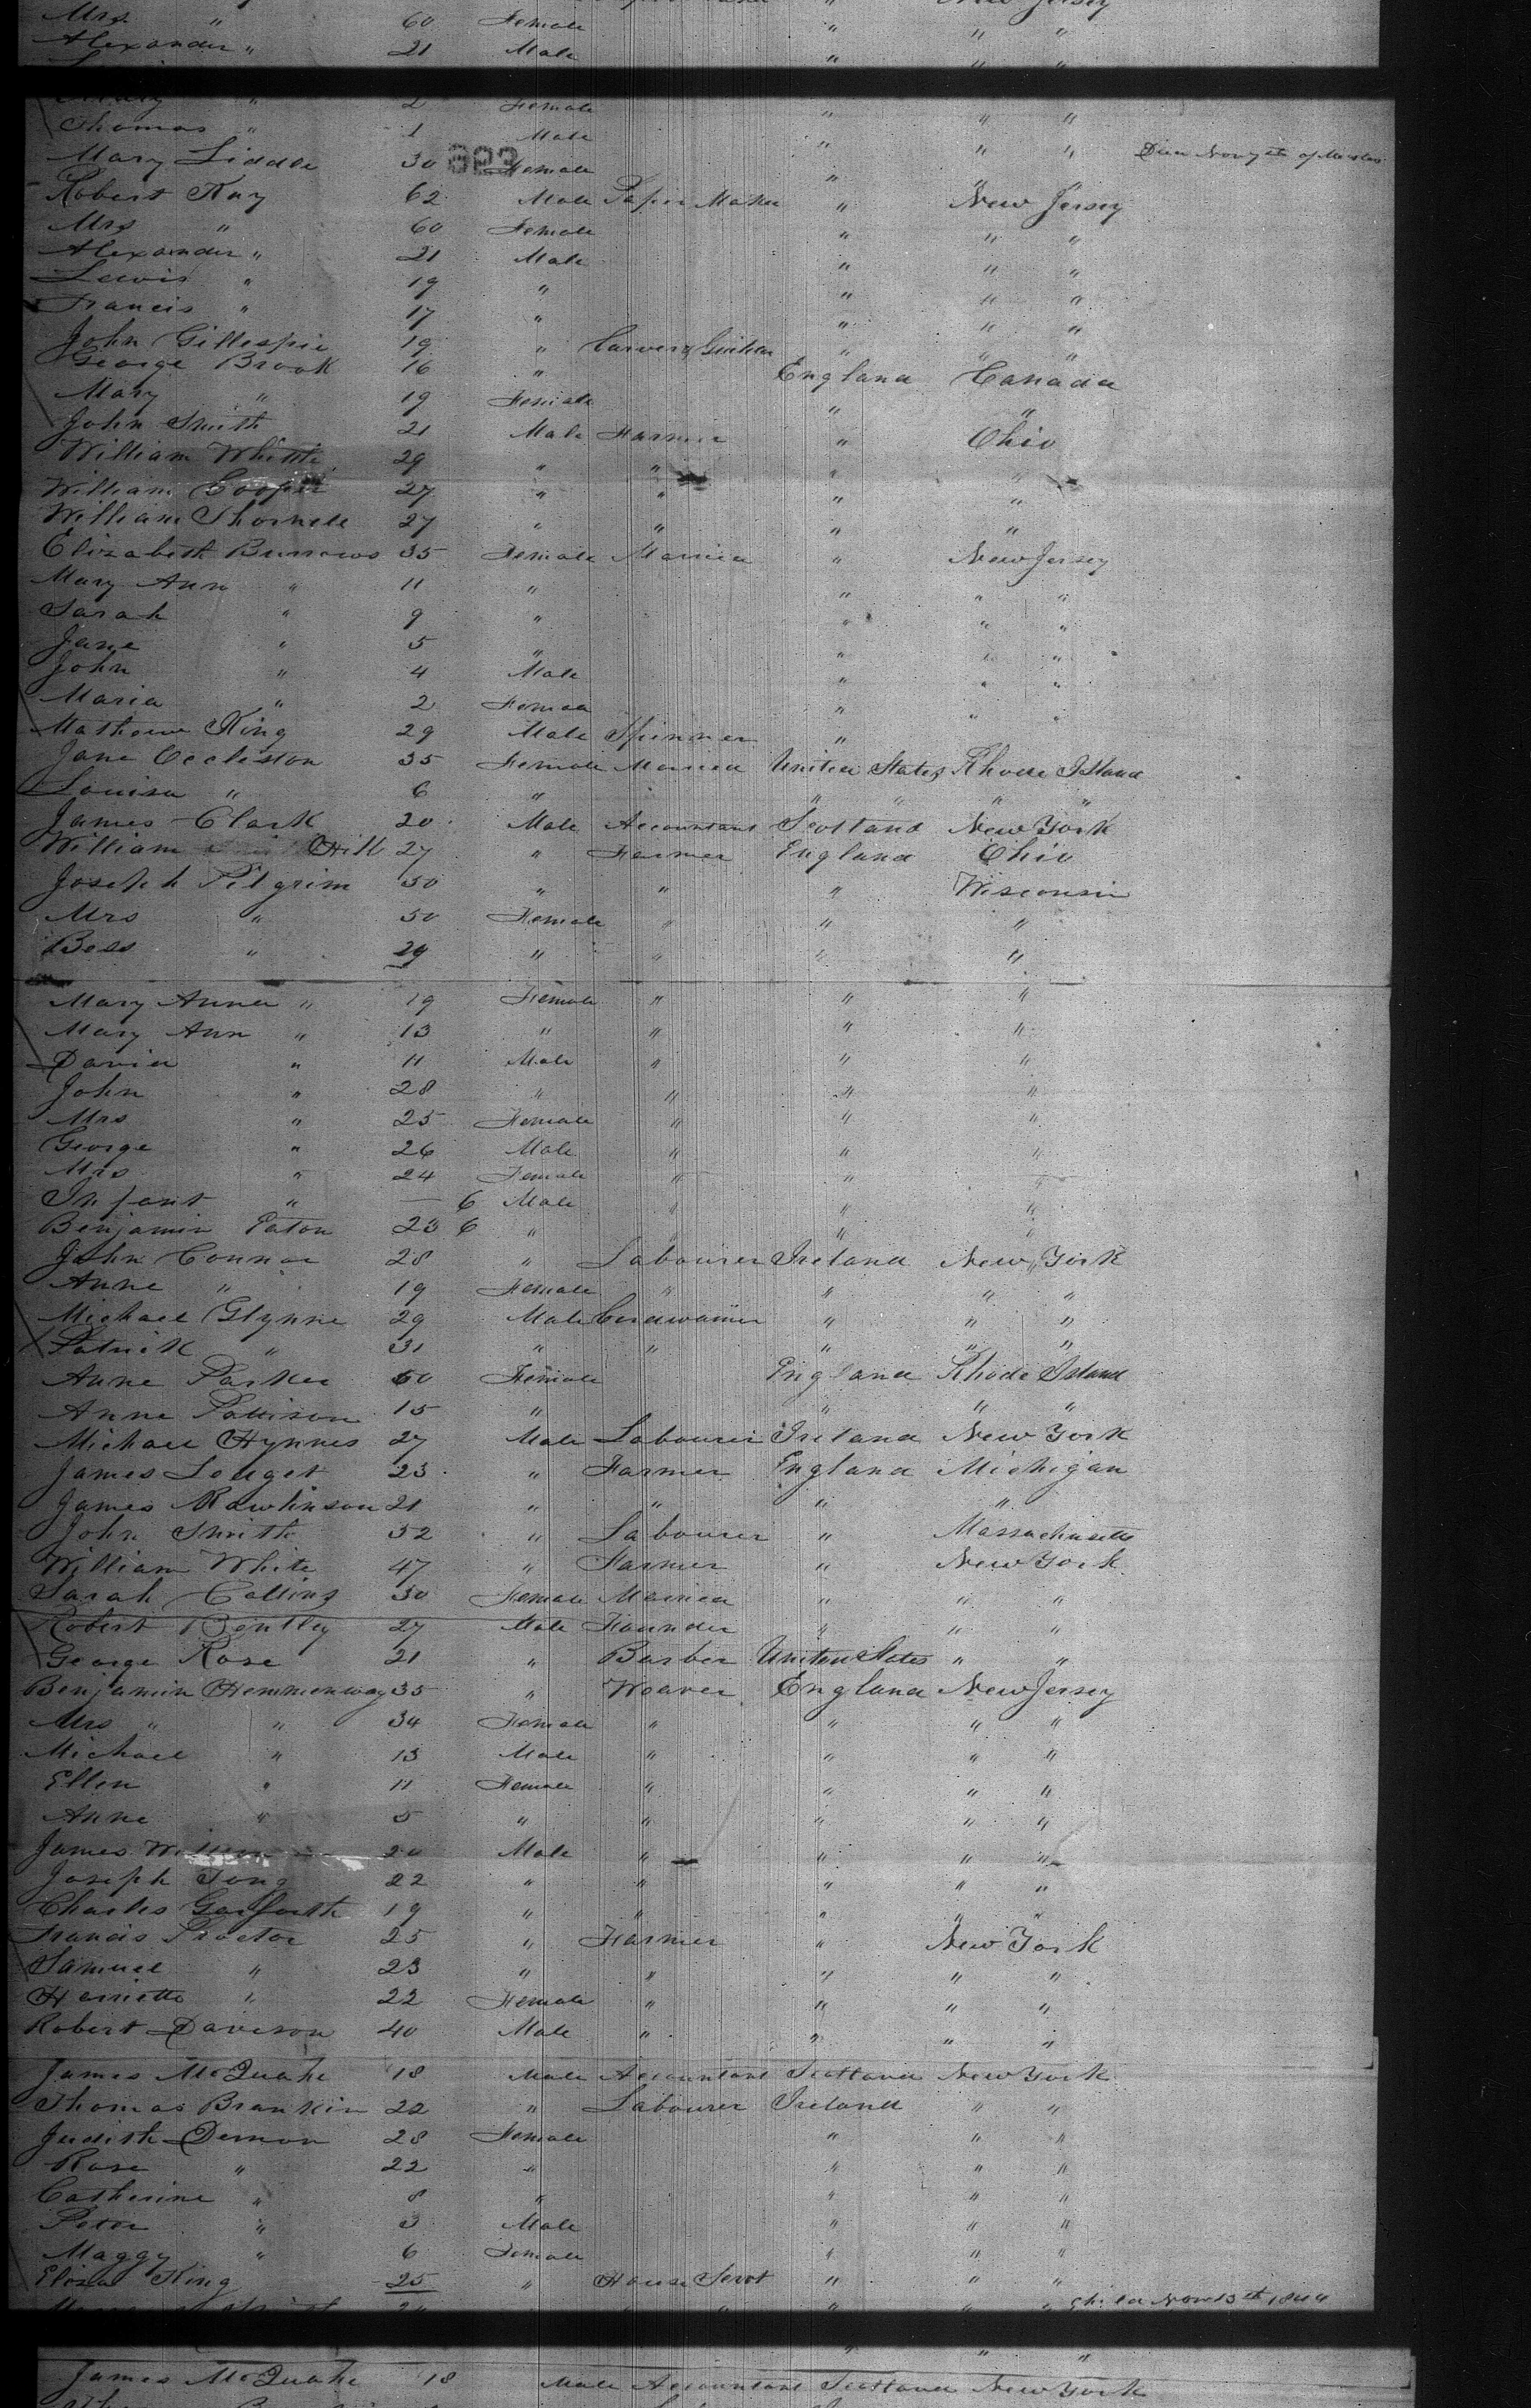 Mrs " 60 Female " " "
Alexander " 21 Male " " "
Mary " 2 Female " " "
Thomas " 1 Male " " " Died Nov 7th of
Mary Liddle 30 Female " " "
Robert Kay 62 Male Paper Maker " New Jersey
Mrs " 60 Female " " "
Alexander " 21 Male " " "
Lewis " 19 " " " "
Francis " 17 " " " "
John Gillespie 19 " Carver & Guilder " " "
George Brook 16 " England Canada
Mary " 19 Female " "
John Smith 21 Male Farmer " Ohio
William Whittle 29 " " " "
William Cooper 27 " " " "
William 27 " " " "
Elizabeth Burrows 35 Female Married " New Jersey
Mary Ann " 11 " " " "
Sarah " 9 " " " "
Jane " 5 " " " "
John " 4 Male " " "
Maria " 2 Female " " "
Mathew King 29 Male Spinner "
Jane Eccleston 35 Female Married United States Rhode Island
Louisa " 6 " " " " "
James Clark 20 Male Accountant Scotland New York
William Hill 27 " Farmer England Ohio
Joseph Pilgrim 50 " " " Wisconsin
Mrs " 50 Female " " "
Bess " 29 " " " "
Mary Anna " 19 Female " " "
Mary Ann " 13 " " " "
David " 11 Male " " "
John " 28 " " " "
Mrs " 25 Female " " "
George " 26 Male " " "
Mrs " 24 Female " " "
Infant " — 6 Male " " "
Benjamin Eaton 23 6 " " "
John Connor 28 " Labourer Ireland New York
Anne " 19 Female " " " "
Michael Glynne 29 Male Cordwainer " " "
Patrick " 31 " " " " "
Anne Parker 60 Female England Rhode Island
Anne Pattison 15 " " " "
Michael Hynnes 27 Male Labourer Ireland New York
James Louget 23 " Farmer England Michigan
James Rawlinson 21 " " " "
John Smith 32 " Labourer " Massachusetts
William White 47 " Farmer " New York
Sarah Collins 30 Female Married " " "
Robert Bentley 27 Male Founder " " "
George Rose 21 " Barber United States " "
Benjamin Hemmenway 35 " Weaver England New Jersey
Mrs " " 34 Female " " " "
Michael " 13 Male " " " "
Ellen " 11 Female " " " "
Anne " 5 " " " " "
James 20 Male " " " "
Joseph Tong 22 " " " " "
Charles Garforth 19 " " " " "
Francis Proctor 25 " Farmer " New York
Samuel " 23 " " " " "
Harriette " 22 Female " " " "
Robert Davison 40 Male " " " "
James McQuahe 18 Male Accountant Scotland New York
Thomas Brankin 22 " Labourer Ireland " "
Judith Dernon 28 Female " " "
Rose " 22 " " " "
Catherine " 8 " " " "
Peter " 3 Male " " "
Maggy " 6 Female " " "
Eliza King 25 " House Servt " " "
Nov 13th 1844
James McQuahe 18 Male Accountant Scotland New York